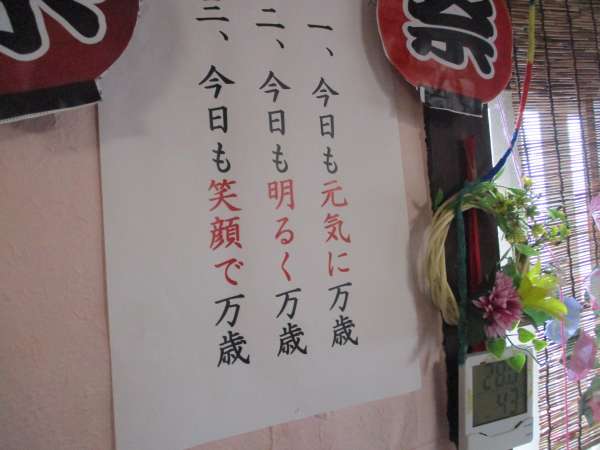 一、今日も元気に万歳
二、今日も明るく万歳
三、今日も笑顔で万歳
祭
28.0
43